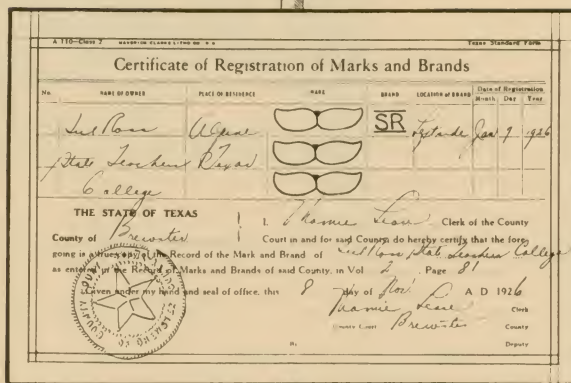 A 110—Class 2 MAVERICK-CLARKE LITHO CO S A Texas Standard Form
Certificate of Registration of Marks and Brands
No. NAME OF OWNER PLACE OF RESIDENCE MARK BRAND LOCATION of BRAND Date of Registration
Month Day Year
Sul Ross Alpine SR Left side Jan 9 1926
State Teachers Texas
College
THE STATE OF TEXAS
County of Brewster
I, Thamie Clerk of the County
Court in and for said County, do hereby certify that the fore-
going is a true copy of the Record of the Mark and Brand of Sul Ross State Teachers College
as entered in the Record of Marks and Brands of said County, in Vol 2, Page 81
Given under my hand and seal of office, this 8 day of Nov A D 1926
Thamie Clerk
County Court Brewster County
Deputy
COUNTY COURT COUNTY OF BREWSTER